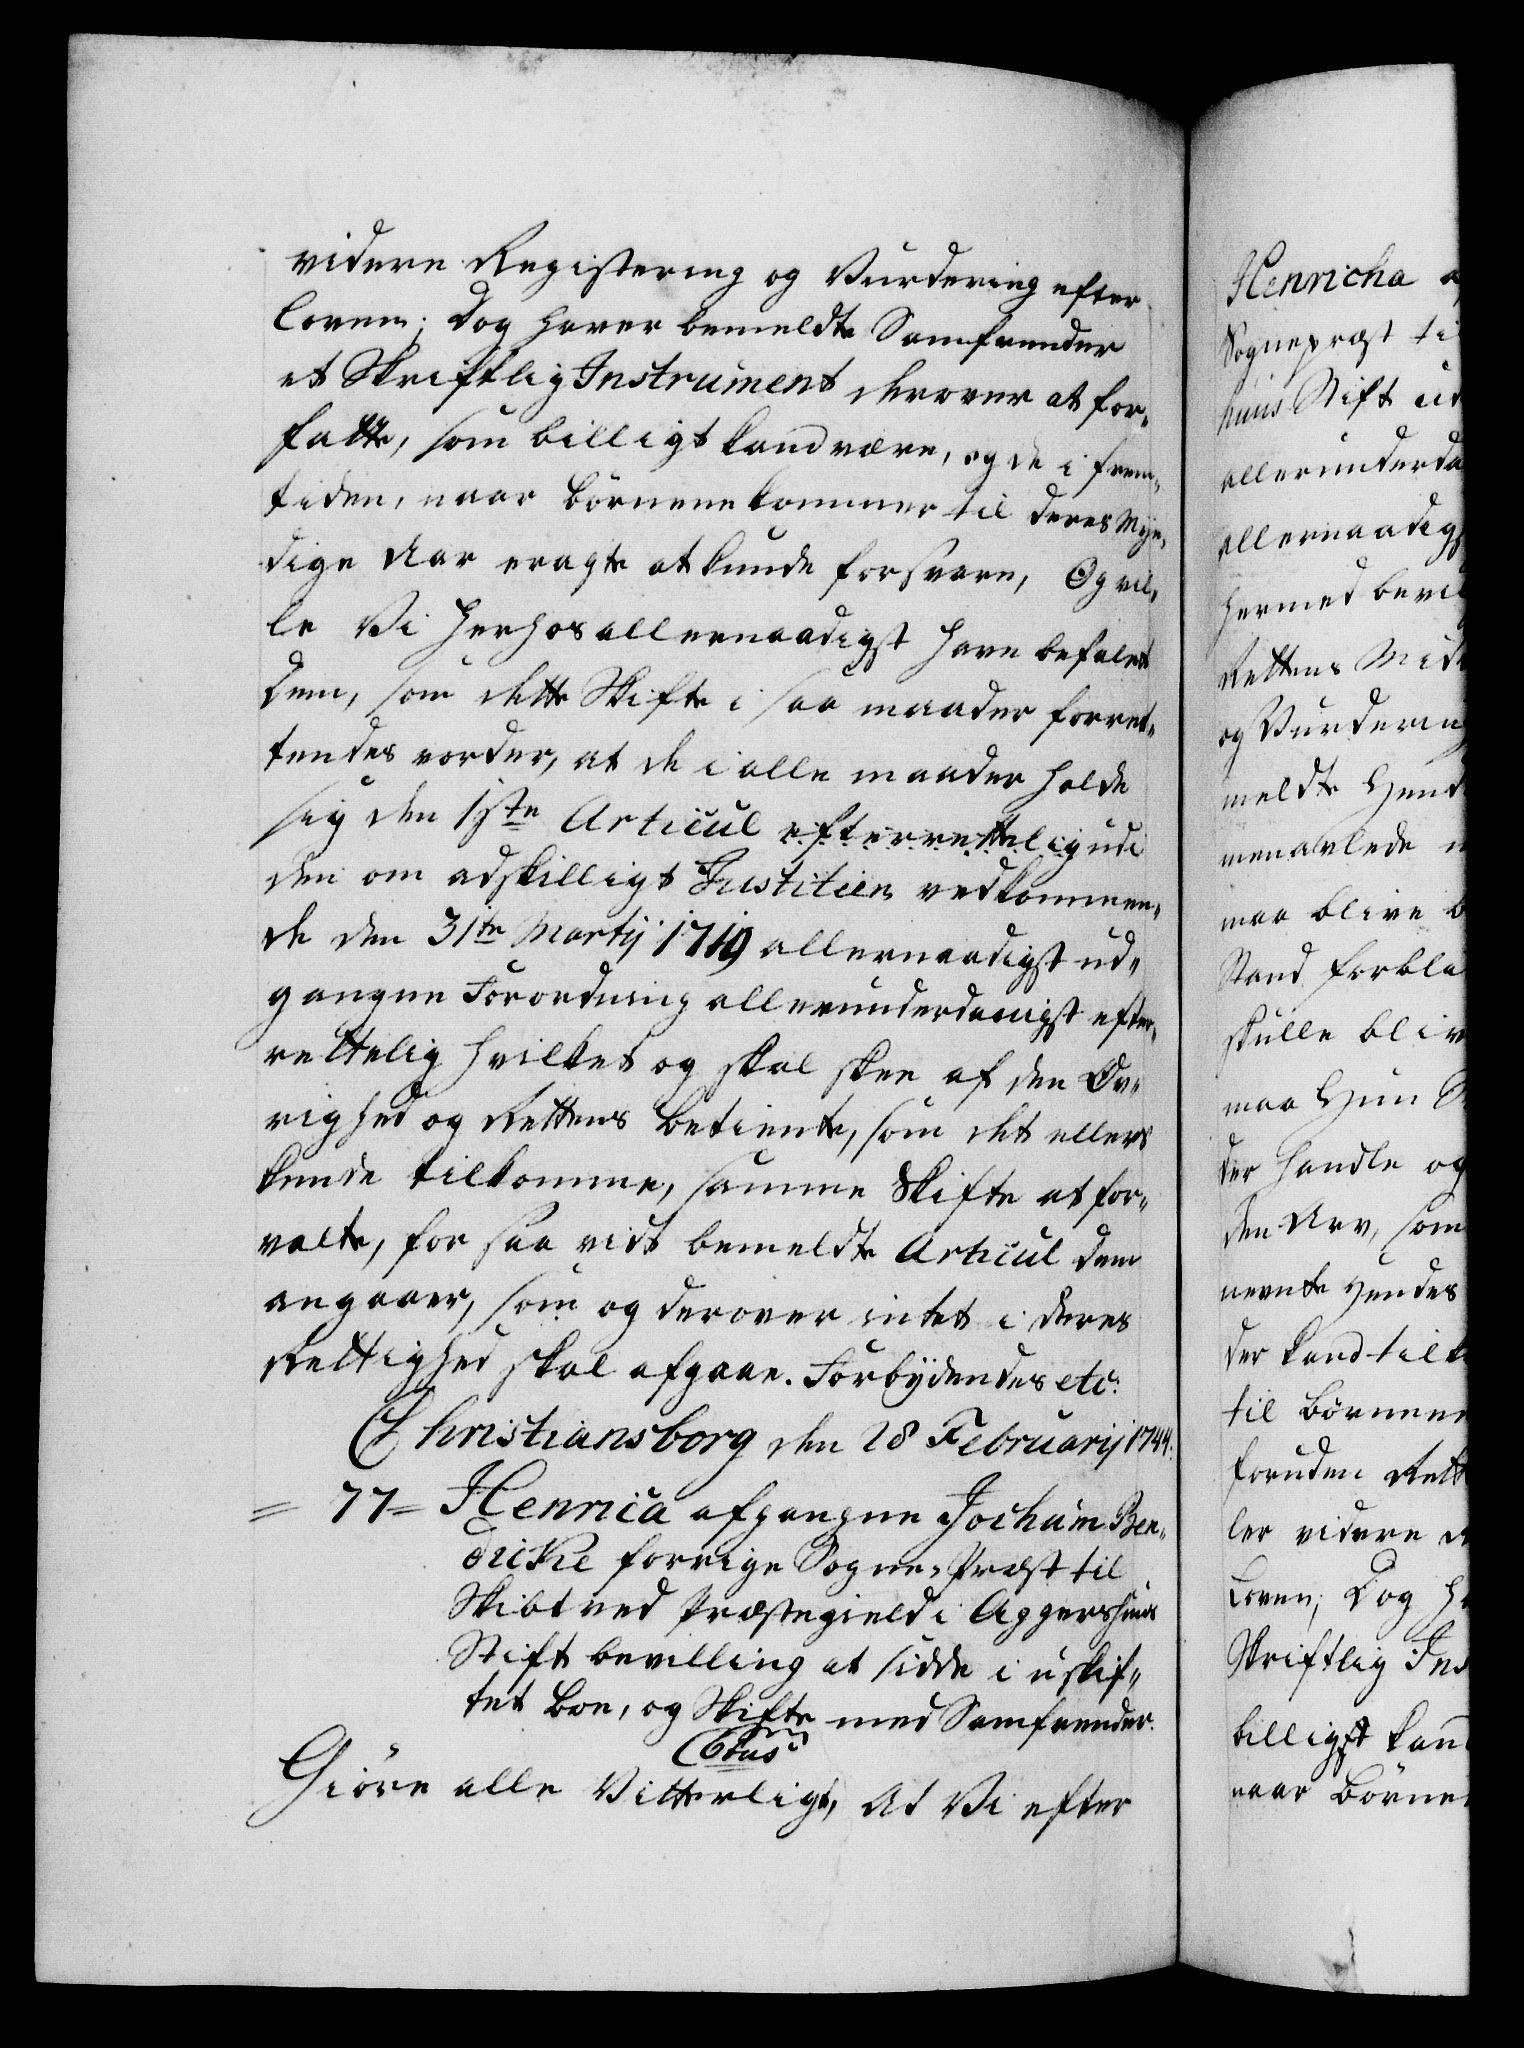 videre Registering og Vurdering efter
Loven; Dog haver bemeldte Samfrender
et Skriftlig Instrument derover at for„
fatte, som billigt kand være, og de i frem„
tiden, naar Börnene kommer til deres Myn„
dige Aar eragte at kunde forsvare, Og vil„
le Vi herhos allernaadigst have befalet
dem, som dette Skifte i saa maader forret„
tendes vorder, at de i alle maader holde
sig den 1ste Articul efterrettelig udi
den om adskilligt Justitien vedkommen„
de den 31te Martij 1719 allernaadigst ud„
gangne Forordning allerunderdanigst efter„
rettelig hvilket og skal skee af den Öv„
righed og Rettens Betiente, som det ellers
kunde tilkomme, samme Skifte at for„
valte, for saa vidt bemeldte Articul dem
angaaer, som og derover intet i deres
Rettighed skal afgaae. Forbÿdendes etc:
Christiansborg den 28 Februarij 1744.
= 77 = Henrica afgangne Jochum Ben„
dicke forrige Sogne-Præst til
Skibtved Præstegield i Aggershuus
Stift bevilling at sidde i uskif„
tet Boe, og Skifte med Samfrender.
C6tus
Giöre alle Vitterligt, At Vi efter
Henricha
Sognepræst til
huus Stift
allerunderda
allernaadigst
hermed bevil
Rettens Mid
og Vurdering
meldte Hend
menavlede
maa blive
Stand forble
skulle bliv
maa Hun
der handle og
den Arv, som
nevnte Hendes
der kand tilk
til Börnene
foruden Rett
ler videre
Loven; Dog
Skriftlig Ins
billigst kan
naar Börne